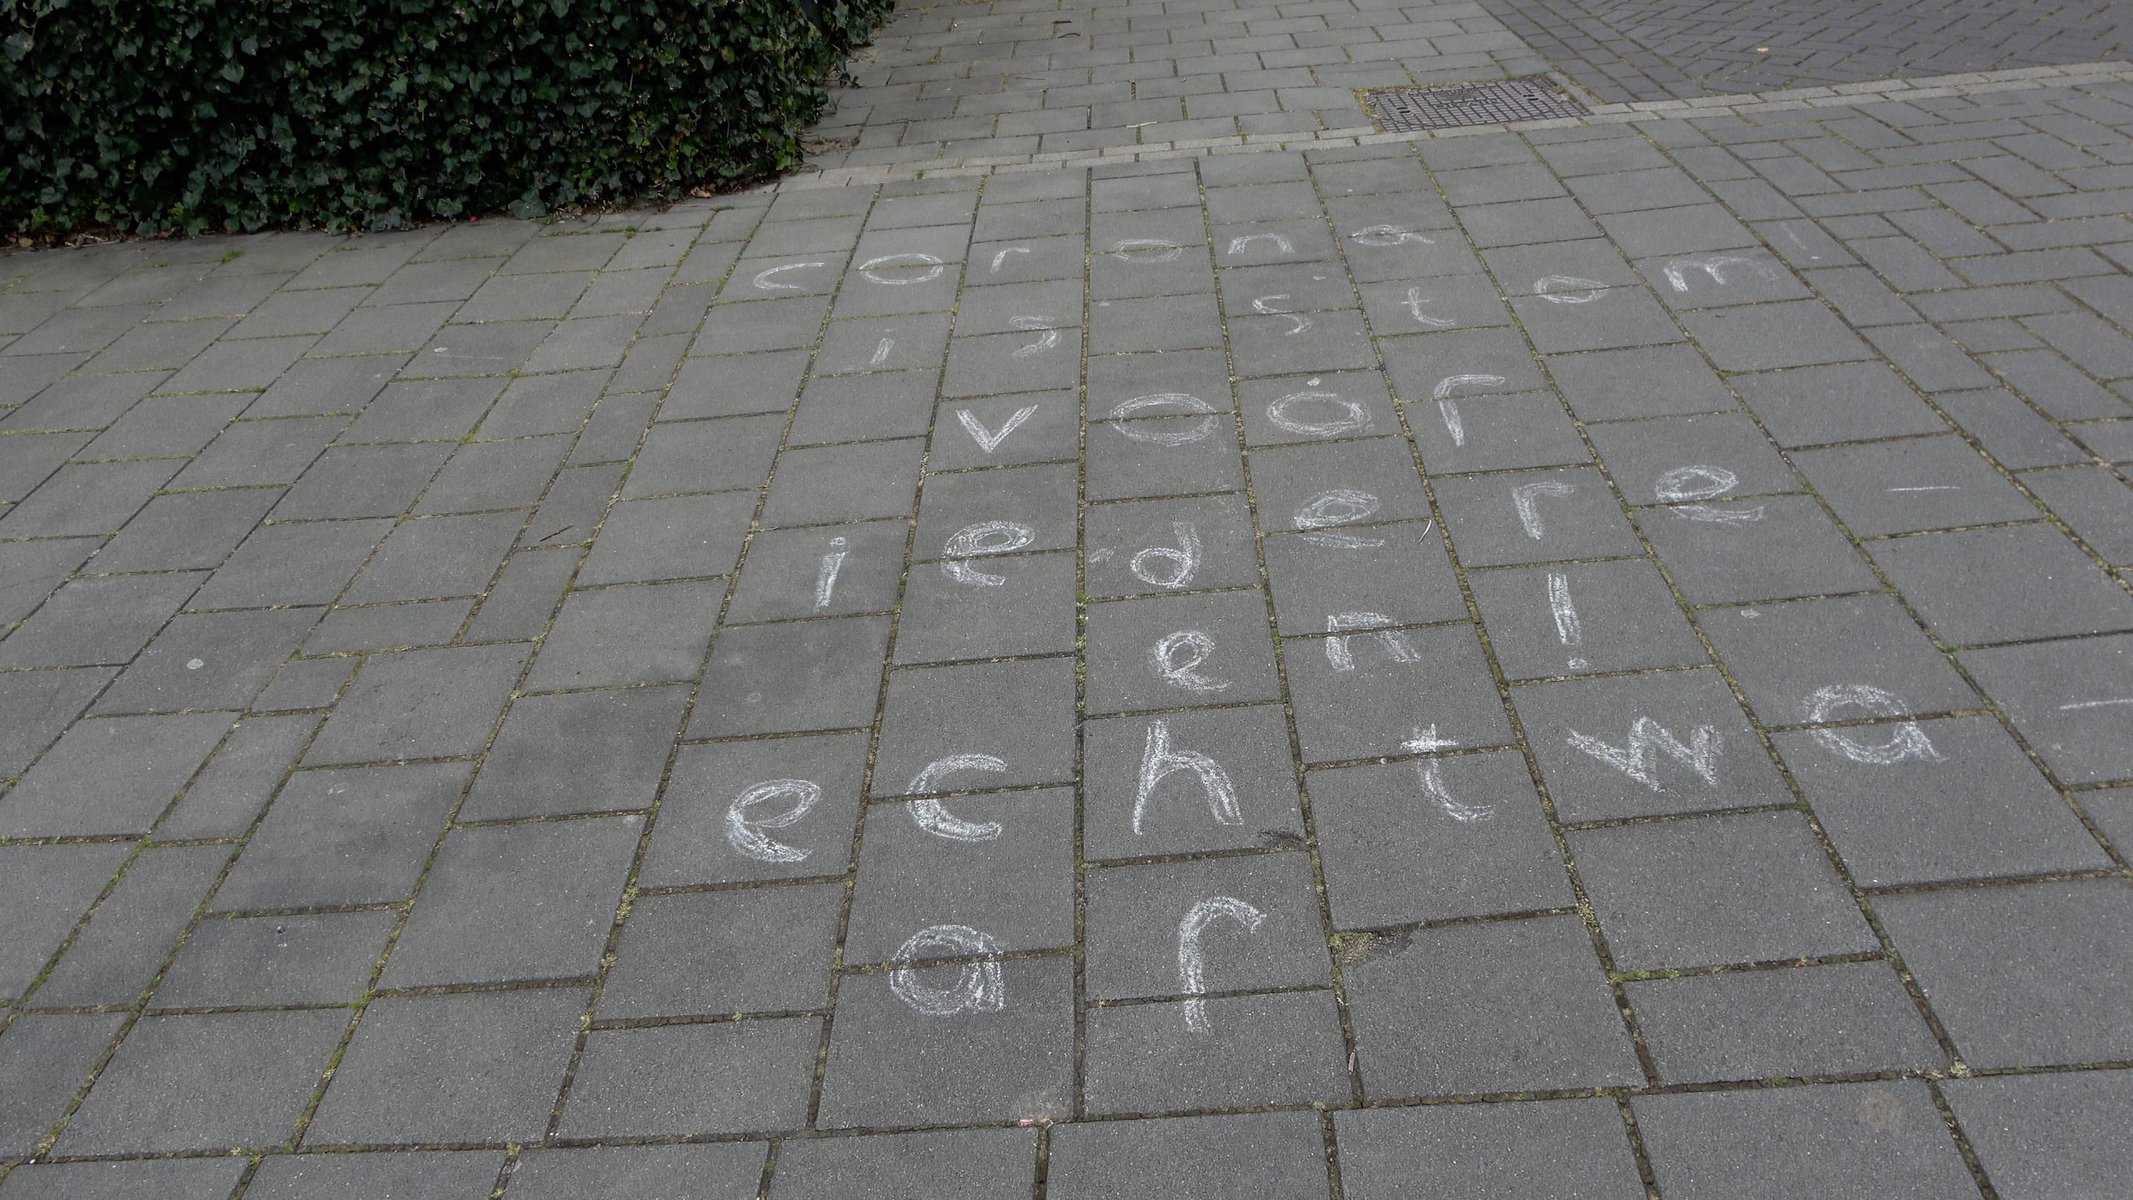 corona
is stom!
voor
iedere-
en!
echtwa-
ar